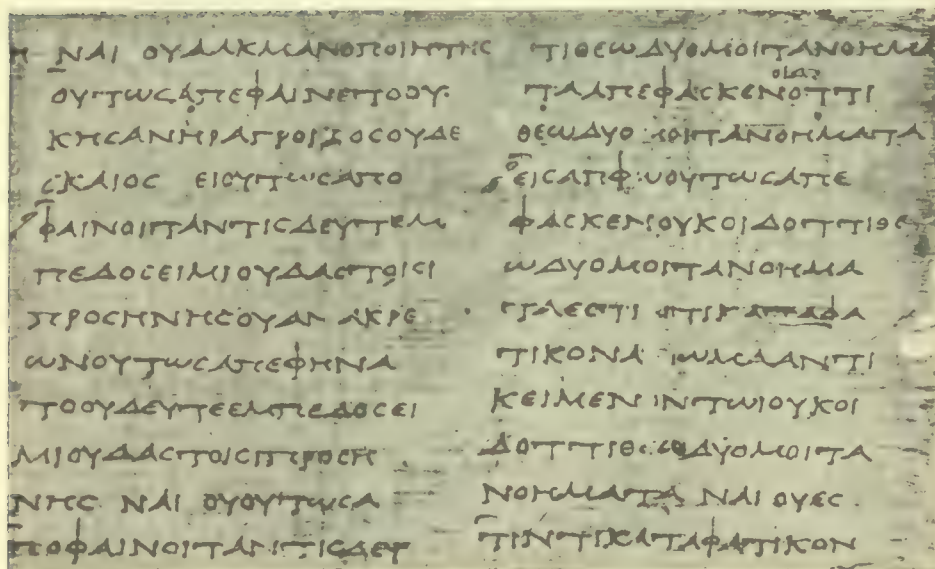 Η ΝΑΙ ΟΥΑΛΚΜΑΝΟΠΟΙΗΤΗϹ
ΟΥΤΩϹΑΠΕΦΑΙΝΕΤΟΟΥ
ΚΗϹΑΝΗΡΑΓΡΟΙΚΟϹΟΥΔΕ
ϹΚΑΙΟϹ ΕΙΟΥΤΩϹΑΠΟ
ΦΑΙΝΟΙΤΑΝΤΙϹΔΕΥΤΕΜ
ΠΕΔΟϹΕΙΜΙΟΥΔΑϹΤΟΙϹΙ
ΠΡΟϹΗΝΗϹΟΥΑΝΑΚΡΕ
ΩΝΟΥΤΩϹΑΠΕΦΗΝΑ
ΤΟΟΥΔΕΥΤΕΕΜΠΕΔΟϹΕΙ
ΜΙΟΥΔΑϹΤΟΙϹΙΠΡΟϹΗ
ΝΗϹ ΝΑΙ ΟΥΟΥΤΩϹΑ
ΠΟΦΑΙΝΟΙΤΑΝΤΙϹΔΕΥ
ΤΙΘΕΩΔΥΟΜΟΙΤΑΝΟΗΜΑ
ΤΑΑΠΕΦΑϹΚΕΝΟΤΤΙ
ΘΕΩΔΥΟ ΜΟΙΤΑΝΟΗΜΑΤΑ
ΦΑϹΚΕΝΟΥΚΟΙΔΟΤΤΙΘΕ
ΩΔΥΟΜΟΙΤΑΝΟΗΜΑ
ΤΑΕϹΤΙ ΤΙΚΑΤΑΦΑ
ΤΙΚΟΝΑΞΙΩΜΑΑΝΤΙ
ΚΕΙΜΕΝΟΝΤΩΙΟΥΚΟΙ
ΔΟΤΤΙΘΕΩΔΥΟΜΟΙΤΑ
ΝΟΗΜΑΤΑ ΝΑΙ ΟΥΕϹ
ΤΙΝΤΙΚΑΤΑΦΑΤΙΚΟΝ